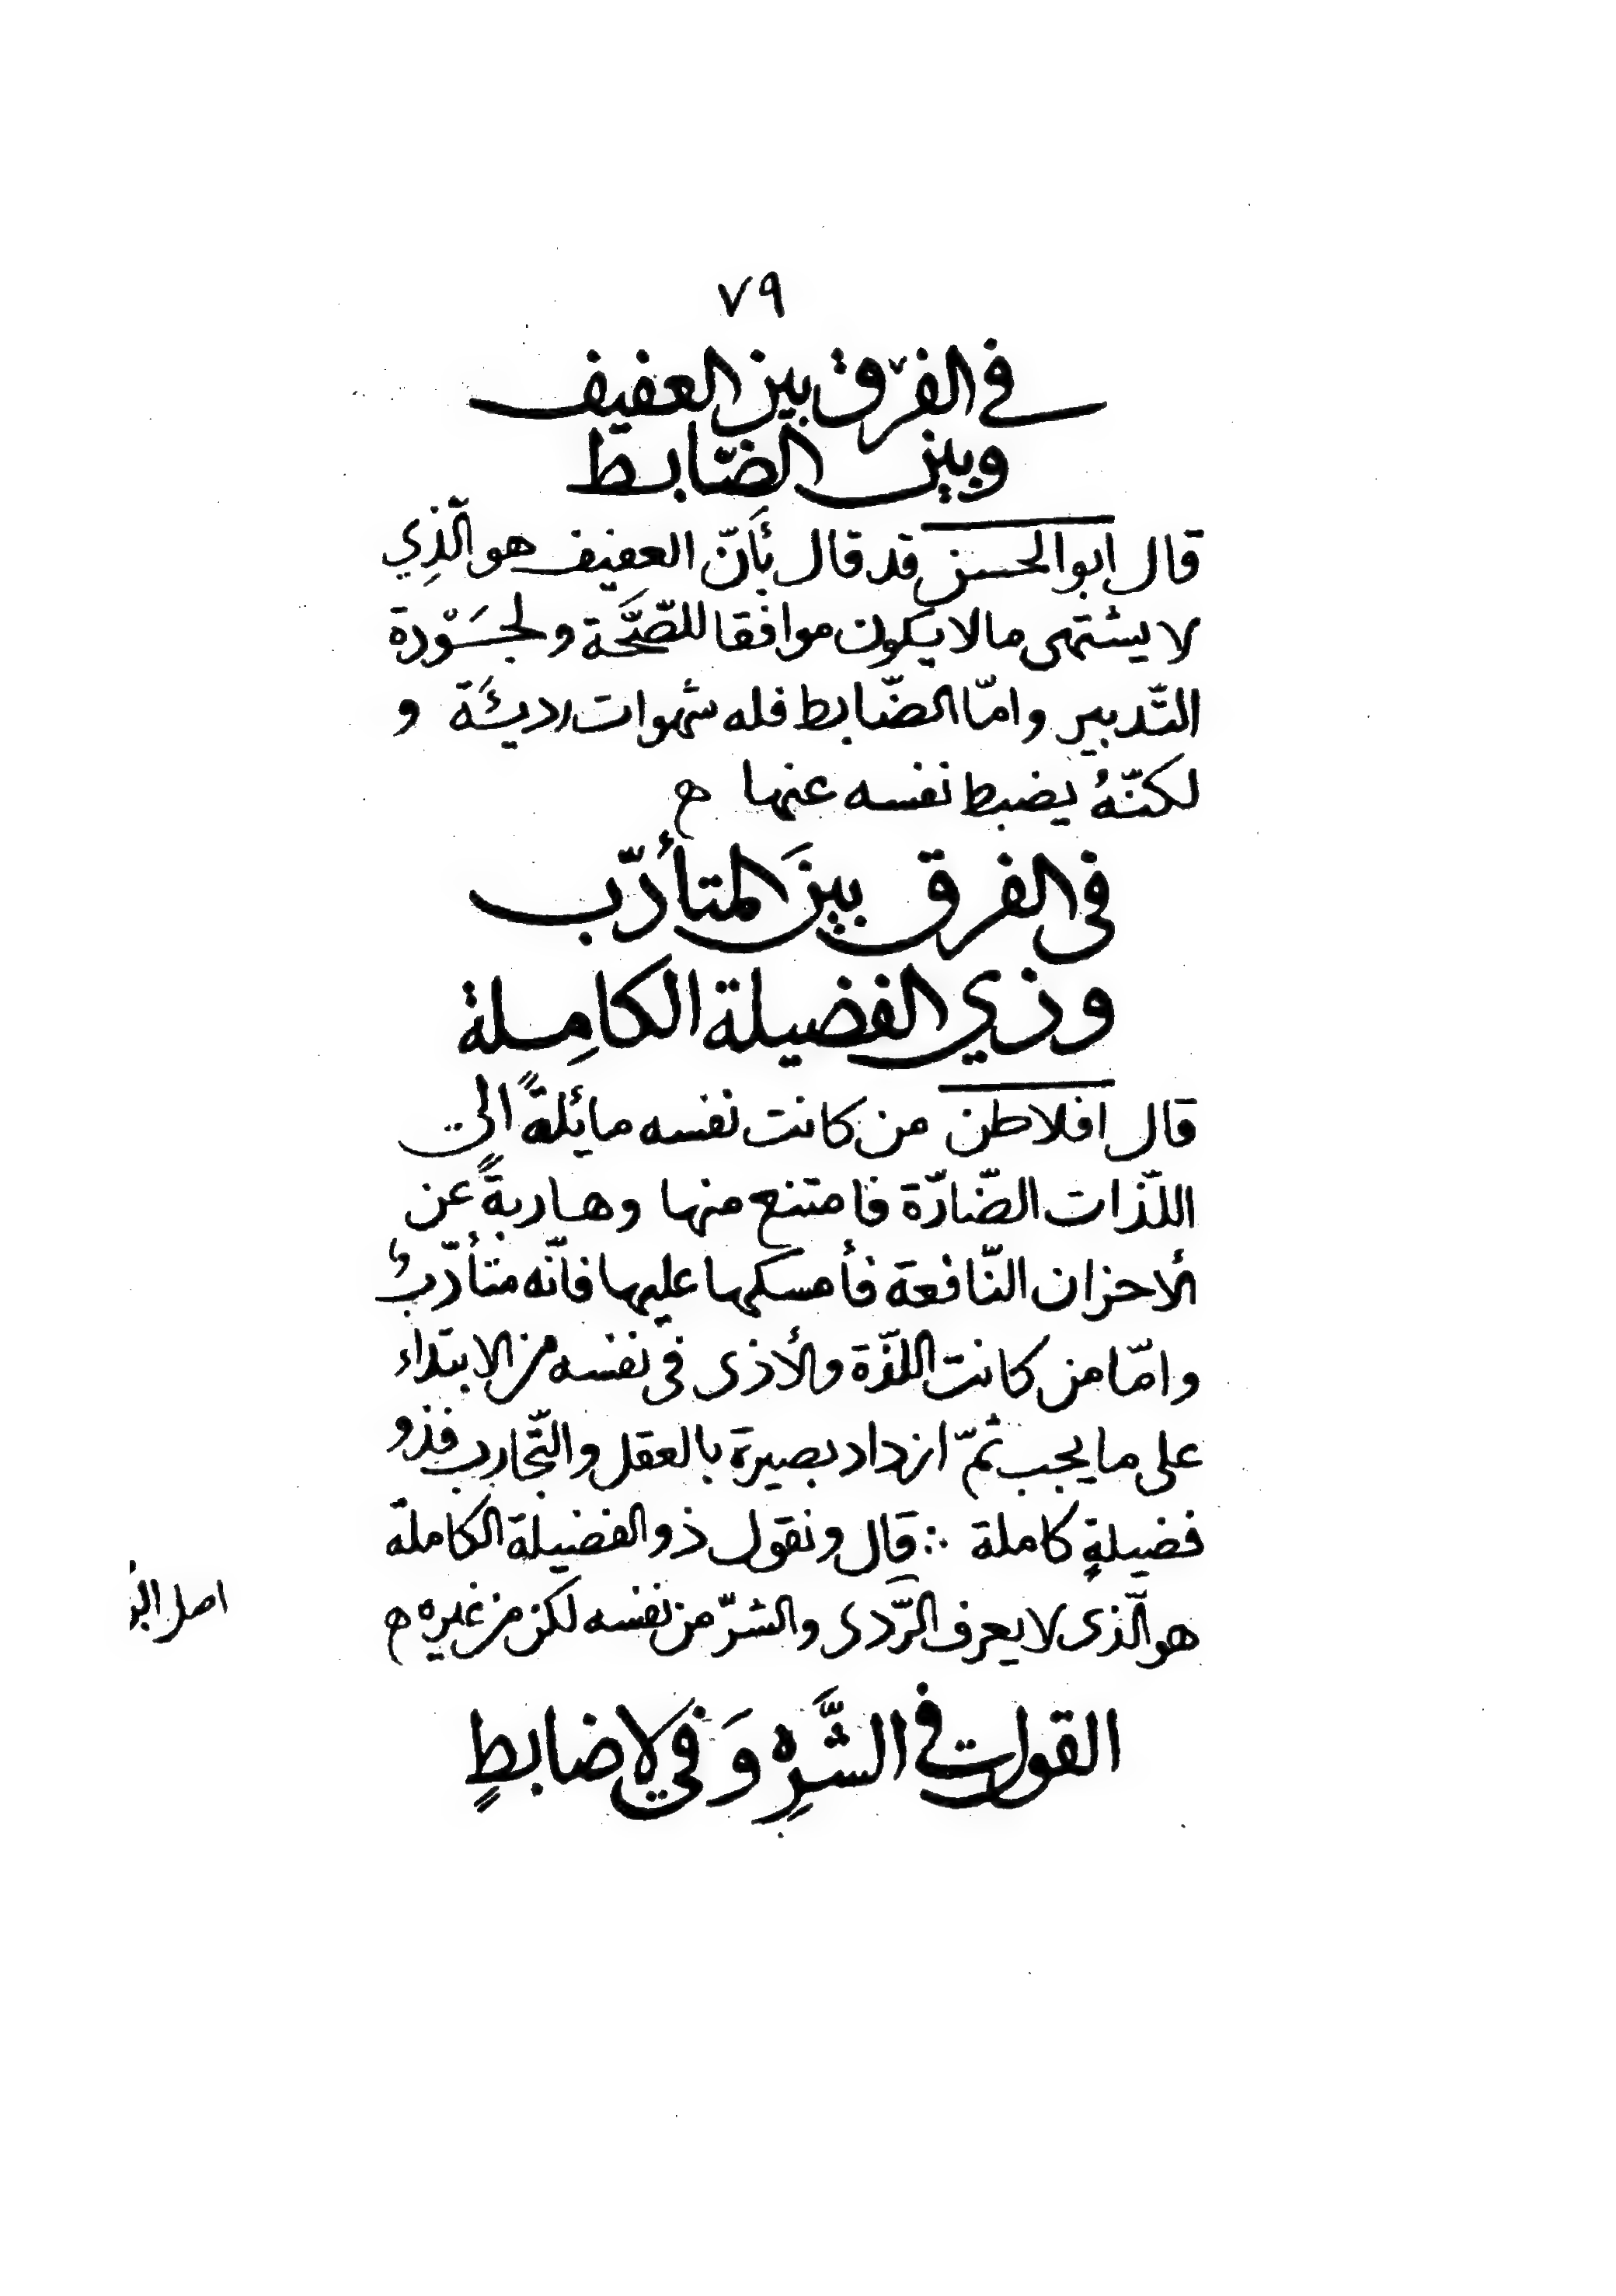 ٧٩
في الفرق بين العفيف
وبين الضّابط
قال ابو الحسن قد قال بأنّ العفيف هو الّذي
لا يشتهى مالا يكون موافقا للصّحّة ولجَوْدة
التّدبير وامّا الضّابط فله شهوات رديئة و
لكنّهُ يضبط نفسه عنها ح
فى الفرق بينَ المتأدّب
وذي الفضيلة الكامِلة
قال افلاطن من كانت نفسه مائلةً الى
اللّذات الضّارّة فامتنع منها وهاربةً عن
الأحزان النّافعة فأمسكها عليها فانّه متأدّبٌ
وامّا من كانت اللذّة والأذى فى نفسه من الابتداء
على ما يجب ثمّ ازداد بصيرة بالعقل والتّجارب فذو
فضيلةٍ كاملة ∴ قال ونقول ذو الفضيلة الكاملة
هو الّذى لا يعرف الرّدى والشرّ من نفسه لكن من غيره ح
اصل
القول في الشَّرِه وَفي لا ضابطٍ